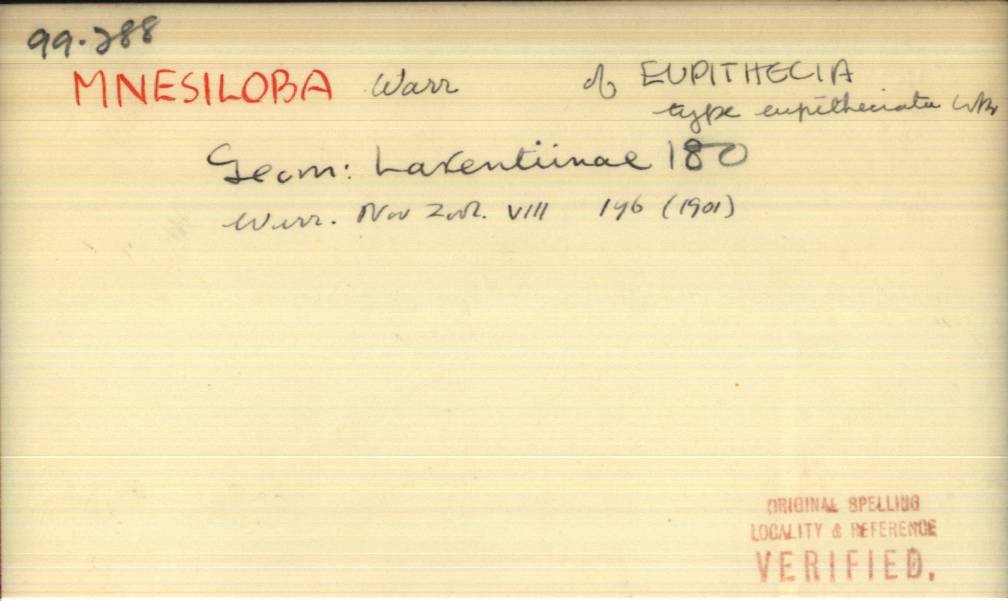 99.288
MNESILOBA Warr of EUPITHECIA
type eupitheciata Wkr
Geom: Larentiinae 180
Warr. Nov Zool. VIII 196 (1901)
ORIGINAL SPELLING
LOCALITY & REFERENCE
VERIFIED.